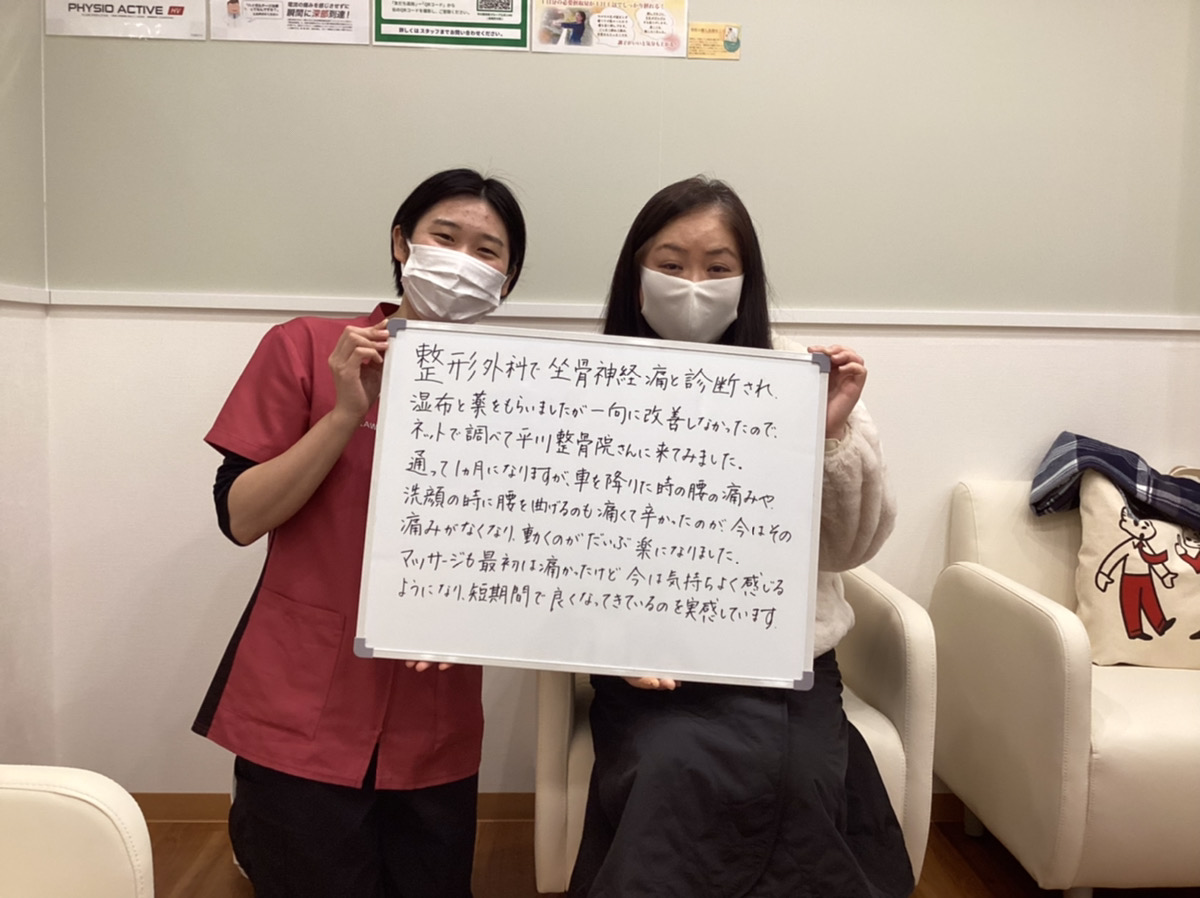 PHYSIO ACTIVE HV
瞬間に深部到達!
詳しくはスタッフまでお問い合わせください。
整形外科で坐骨神経痛と診断され、
湿布と薬をもらいましたが一向に改善しなかったので、
ネットで調べて平川整骨院さんに来てみました。
通って1ヵ月になりますが、車を降りた時の腰の痛みや、
洗顔の時に腰を曲げるのも痛くて辛かったのが、今はその
痛みがなくなり、動くのがだいぶ楽になりました。
マッサージも最初は痛かったけど今は気持ちよく感じる
ようになり、短期間で良くなってきているのを実感しています。